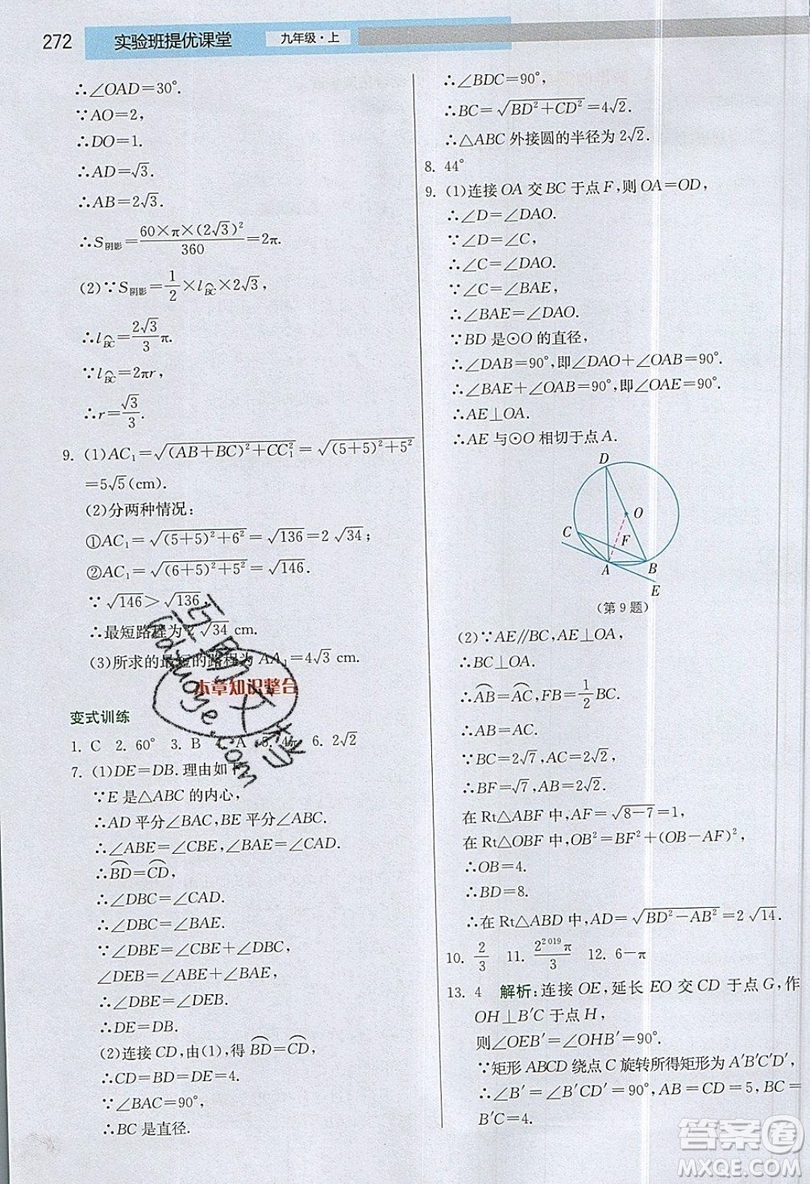 272 实验班提优课堂 九年级·上
∴∠OAD=30°.
∵AO=2,
∴DO=1.
∴AD=√3.
∴AB=2√3.
∴S阴影=60×π×(2√3)²/360=2π.
(2)∵S阴影=1/2×l⌒BC×2√3,
∴l⌒BC=2√3/3π.
∵l⌒BC=2πr,
∴r=√3/3.
9. (1)AC₁=√((AB+BC)²+CC₁²)=√((5+5)²+5²)
=5√5(cm).
(2)分两种情况:
①AC₁=√((5+5)²+6²)=√136=2√34;
②AC₁=√((6+5)²+5²)=√146.
∵√146>√136,
∴最短路程为2√34 cm.
(3)所求的最短的路程为AA₁=4√3 cm.
本章知识整合
变式训练
1. C 2. 60° 3. B A 5. 4π 6. 2√2
7. (1)DE=DB. 理由如
∵E是△ABC的内心,
∴AD平分∠BAC,BE平分∠ABC.
∴∠ABE=∠CBE,∠BAE=∠CAD.
∴⌒BD=⌒CD.
∴∠DBC=∠CAD.
∴∠DBC=∠BAE.
∵∠DBE=∠CBE+∠DBC,
∠DEB=∠ABE+∠BAE,
∴∠DBE=∠DEB.
∴DE=DB.
(2)连接CD,由(1),得⌒BD=⌒CD,
∴CD=BD=DE=4.
∵∠BAC=90°,
∴BC是直径.
∴∠BDC=90°.
∴BC=√(BD²+CD²)=4√2.
∴△ABC外接圆的半径为2√2.
8. 44°
9. (1)连接OA交BC于点F,则OA=OD,
∴∠D=∠DAO.
∵∠D=∠C,
∴∠C=∠DAO.
∵∠BAE=∠C,
∴∠BAE=∠DAO.
∵BD是⊙O的直径,
∴∠DAB=90°,即∠DAO+∠OAB=90°.
∴∠BAE+∠OAB=90°,即∠OAE=90°.
∴AE⊥OA.
∴AE与⊙O相切于点A.
D
O
C
F
A
B
E
(第9题)
(2)∵AE∥BC,AE⊥OA,
∴OA⊥BC.
∴⌒AB=⌒AC,FB=1/2BC.
∴AB=AC.
∵BC=2√7,AC=2√2,
∴BF=√7,AB=2√2.
在Rt△ABF中,AF=√(8-7)=1,
在Rt△OBF中,OB²=BF²+(OB-AF)²,
∴OB=4.
∴BD=8.
∴在Rt△ABD中,AD=√(BD²-AB²)=2√14.
10. 2/3 11. 2²⁰¹⁹π/3 12. 6-π
13. 4 解析:连接OE,延长EO交CD于点G,作
OH⊥B′C于点H,
则∠OEB′=∠OHB′=90°.
∵矩形ABCD绕点C旋转所得矩形为A′B′C′D′,
∴∠B′=∠B′CD′=90°,AB=CD=5,BC=
B′C=4.
答案圈
MXQE.COM